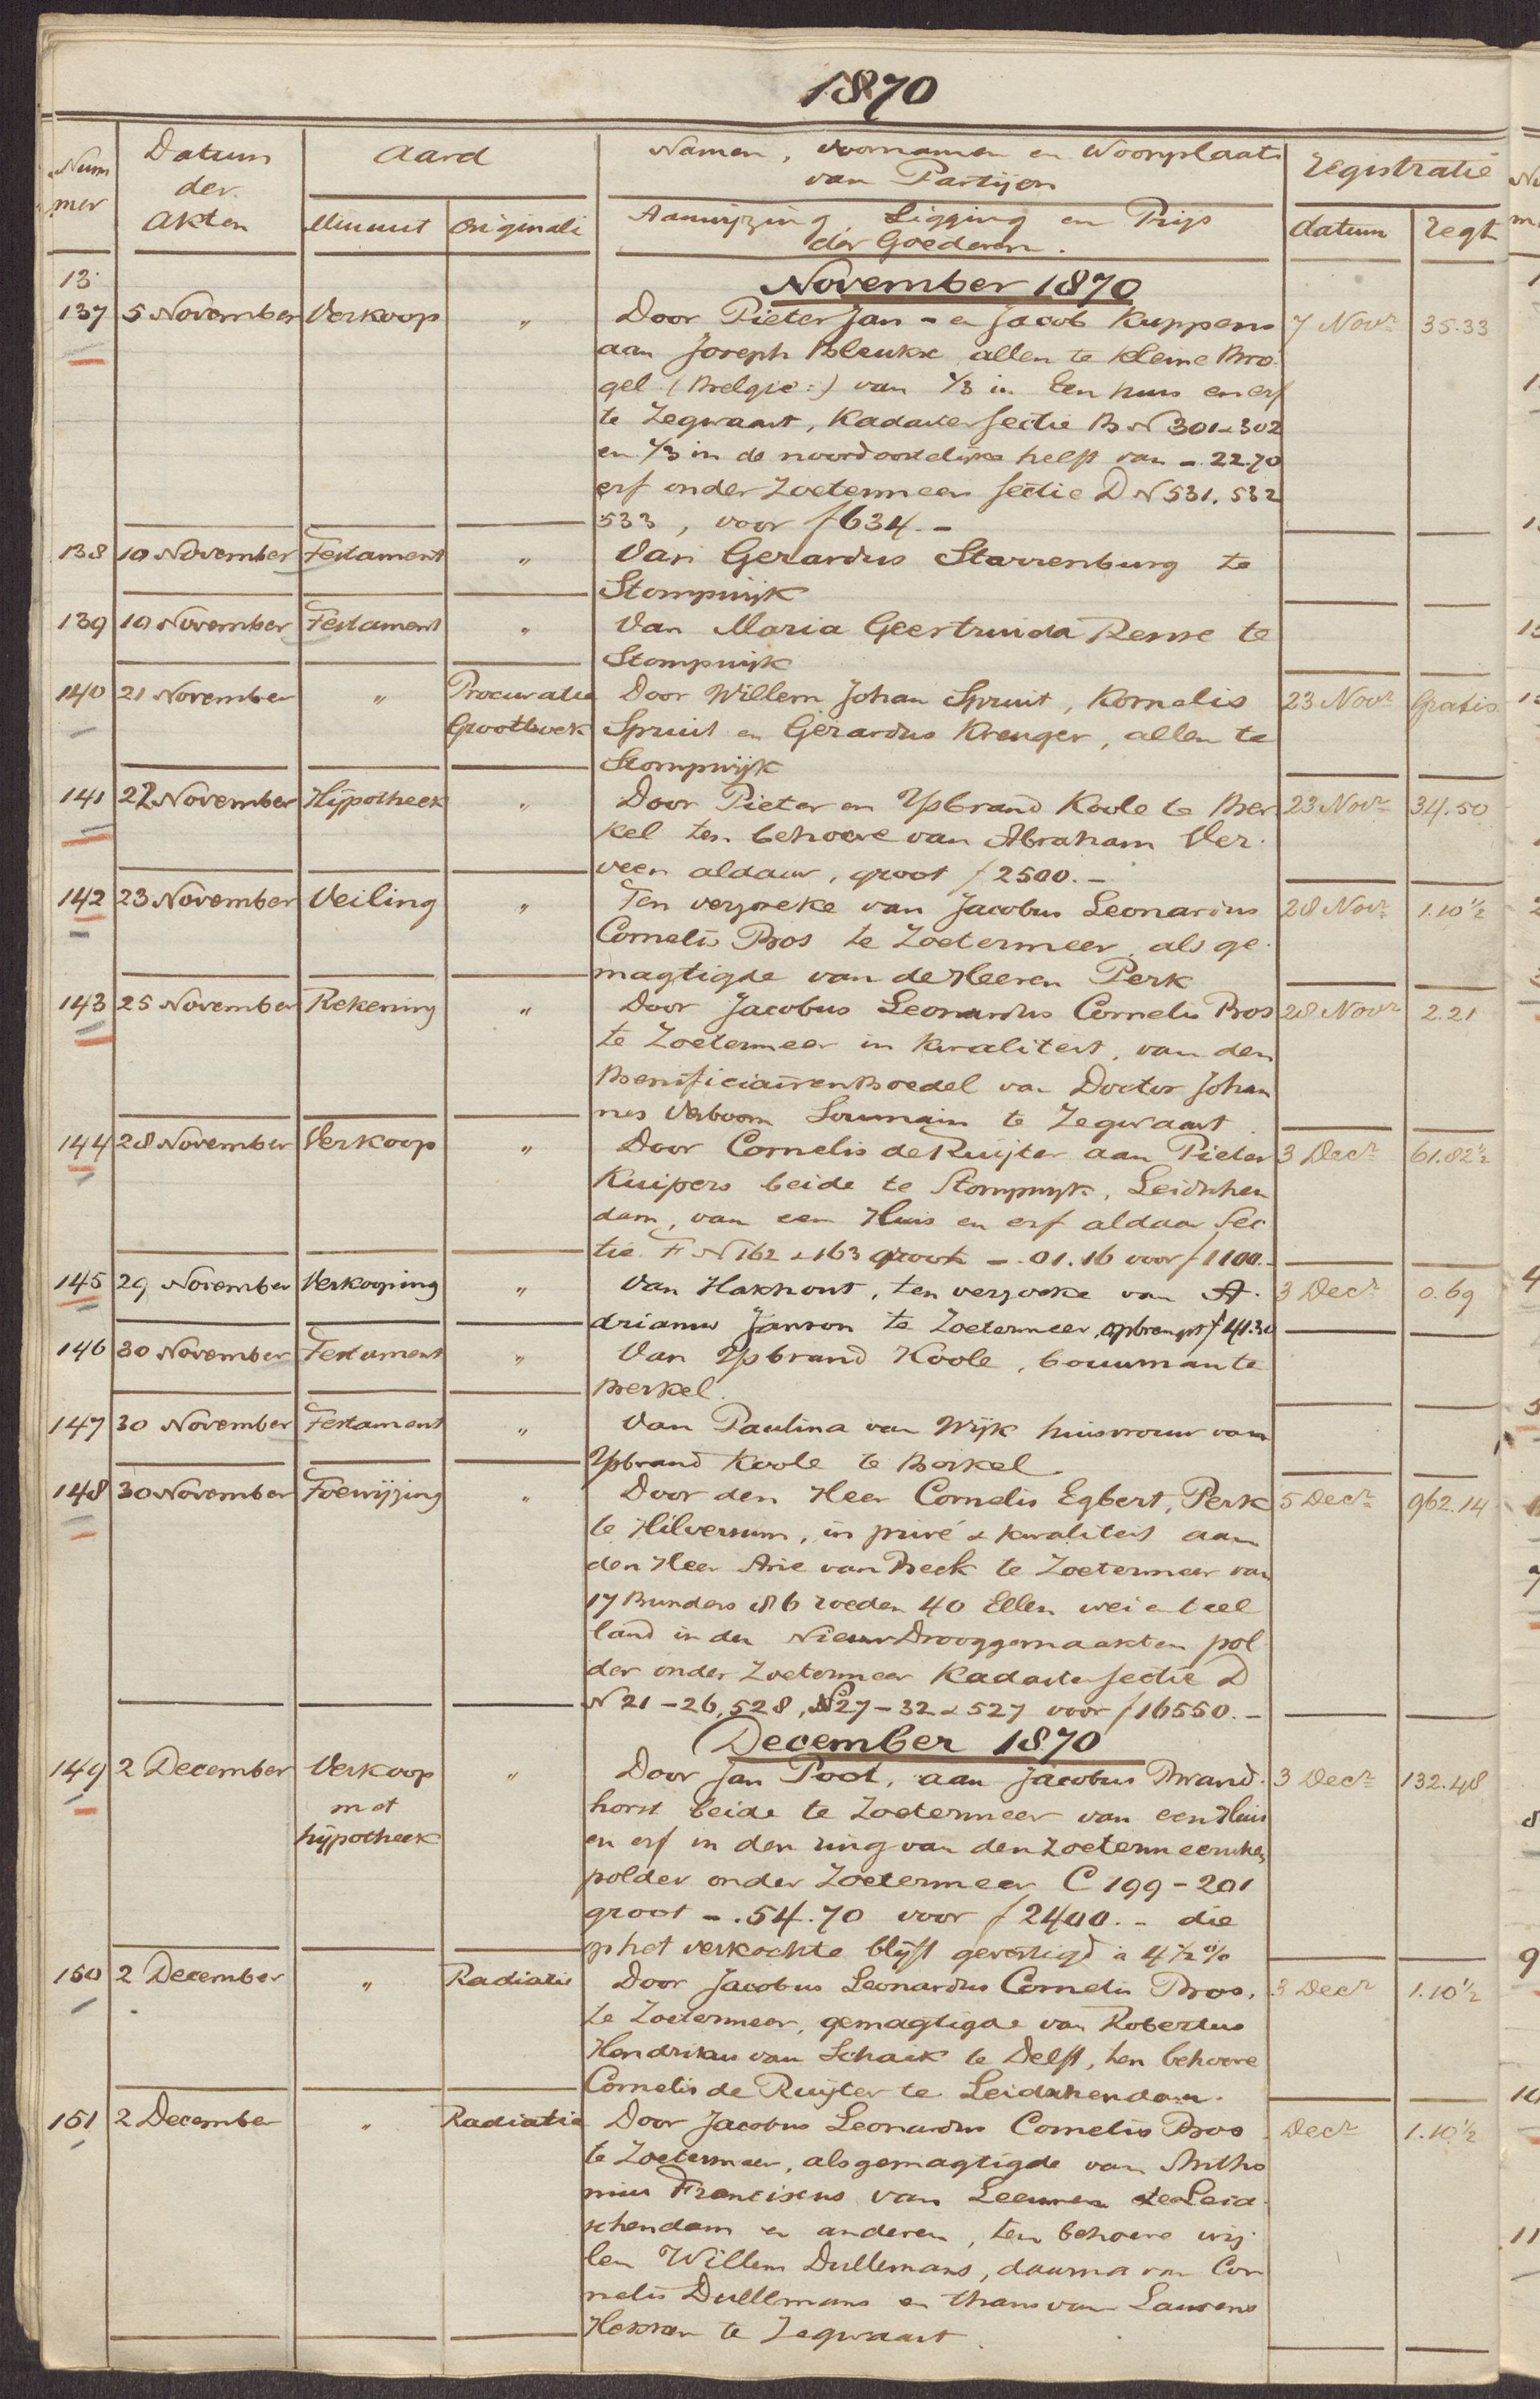 1870
Nummer Datum der Akten Aard Namen, voornamen en Woonplaats van Partijen Registratie
Minuut Originali Aanwijzing Ligging en Prijs der Goederen. datum regt
13.
November 1870
137 5 November Verkoop " Door Pieter Jan - en Jacob Kuppens 7 Novr 35.33
aan Joseph Bleukx allen te Kleine Bro.
gel (Belgie:) van 1/3 in Een huis en erf
te Zegwaart, Kadaster sectie B N 301 & 302
en 1/3 in de noordoostelijke helft van -.22.70
erf onder Zoetermeer sectie D N 531. 532
533, voor f 634.-
138 10 November Testament " Van Gerardus Starrenburg te
Stompwijk
139 10 November Testament " Van Maria Geertruida Remme te
Stompwijk
140 21 November " Procuratie Door Willem Johan Spruit, Kornelis 23 Novr Gratis
Grootboek Spruit en Gerardus Kreuger, allen te
Stompwijk
141 22 November Hijpotheek " Door Pieter en Ysbrand Koole te Ber 23 Novr 34.50
kel ten behoeve van Abraham Ver.
veen aldaar, groot f 2500.-
142 23 November Veiling " Ten verzoeke van Jacobus Leonardus 28 Novr 1.10½
Cornelis Bros te Zoetermeer als ge.
magtigde van de Heeren Perk
143 25 November Rekening " Door Jacobus Leonardus Cornelis Bros 28 Novr 2.21
te Zoetermeer in kwaliteit, van den
Benificiairen Boedel van Doctor Johan
nes Verboom Soumain te Zegwaart
144 28 November Verkoop " Door Cornelis de Ruijter aan Pieter 3 Decr 61.82½
Kuipers beide te Stompwijk, Leidschen
dam, van een Huis en erf aldaar Sec
tie F N 162 & 163 groot -.01.16 voor f 1100.-
145 29 November Verkooping " Van Hakhout, ten verzoeke van A. 3 Decr 0.69
drianus Janson te Zoetermeer, opbrengst f 41.30
146 30 November Testament " Van Ysbrand Koole, bouwman te
Berkel.
147 30 November Testament " Van Paulina van Wijk huisvrouw van
Ysbrand Koole te Berkel
148 30 November Toewijzing " Door den Heer Cornelis Egbert, Perk 5 Decr 962.14
te Hilversum, in privé & kwaliteit aan
den Heer Arie van Beek te Zoetermeer van
17 Bunders 86 roeden 40 Ellen wei en teel
land in den Nieuw Drooggemaakten pol
der onder Zoetermeer Kadaster sectie D
N 21 - 26, 528, N 27 - 32 & 527 voor f 16550.-
December 1870
149 2 December Verkoop " Door Jan Poot, aan Jacobus Brand. 3 Decr 132.48
met horst beide te Zoetermeer van een Huis
hijpotheek en erf in den ring van den Zoetermeerschen
polder onder Zoetermeer C 199 - 201
groot -.54.70 voor f 2400.- die
op het verkochte blijft gevestigd à 4½ %
150 2 December " Radiatie Door Jacobus Leonardus Cornelis Bros, 3 Decr 1.10½
te Zoetermeer, gemagtigde van Robertus
Hendrikus van Schaik te Delft, ten behoeve
Cornelis de Ruijter te Leidschendam.
151 2 December " Radiatie Door Jacobus Leonardus Cornelis Bros Decr 1.10½
te Zoetermeer, als gemagtigde van Antho
nius Franciscus van Leeuwen te Leid.
schendam en anderen, ten behoeve wij.
len Willem Dullemans, daarna van Cor
nelis Dullemans en thans van Laurens
te Zegwaart.